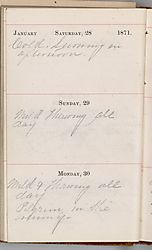 January Saturday, 28 1871.
Cold. Snowing in
afternoon
Sunday, 29
Mild Thawing all
day
Monday, 30
Mild & thawing all
day
in the